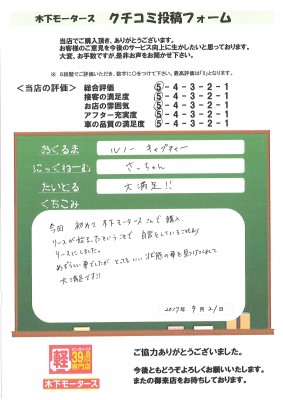 木下モータース　クチコミ投稿フォーム
当店でご購入頂き、ありがとうございます。
お客様のご意見を今後のサービス向上に生かしたいと思っております。
大変、お手数ですが、是非お声をお聞かせ下さい。
※ 5段階でご評価いただき、数字に○をつけて下さい。最高評価は「5」となります。
＜当店の評価＞ 総合評価 5－4－3－2－1
接客の満足度 5－4－3－2－1
お店の雰囲気 5－4－3－2－1
アフター充実度 5－4－3－2－1
車の品質の満足度 5－4－3－2－1
みくるま ルノー キャプティー
にっくねーむ さっちゃん
たいとる 大満足!!
くちこみ
今回 初めて 木下モータースさんで購入
リースが始まったということで
リースにしました。
めずらしい車でしたが とってもいい状態の車を見つけてくれて
大満足です!!
2017年 9月21日
軽
39.8
専門店
木下モータース
ご協力ありがとうございました。
今後ともどうぞよろしくお願いいたします。
またの御来店をお待ちしております。